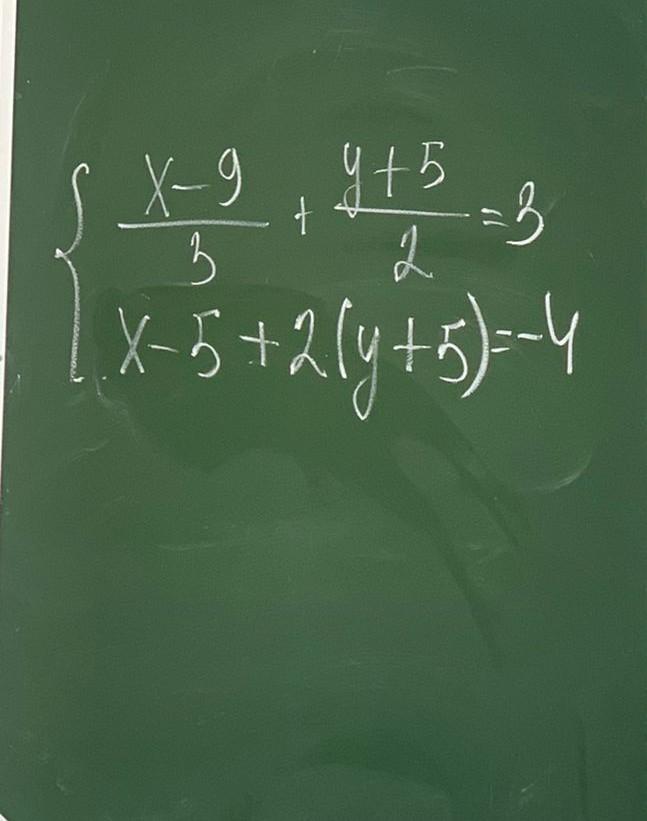 { (x-9)/3 + (y+5)/2 = 3
x-5+2(y+5)=-4